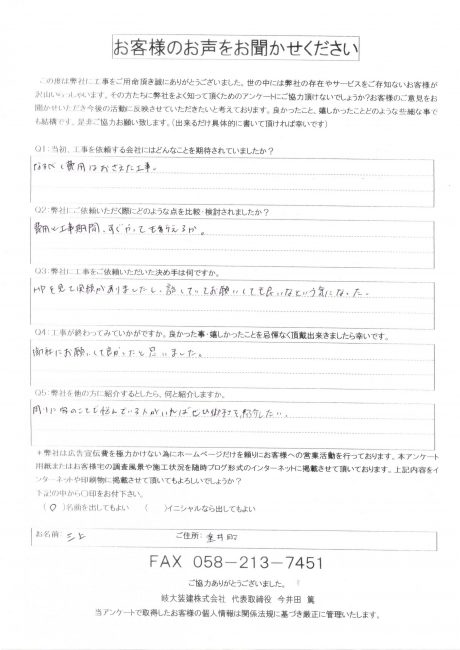 お客様のお声をお聞かせください
この度は弊社に工事をご用命頂き誠にありがとうございました。世の中には弊社の存在やサービスをご存知ないお客様が
沢山いらっしゃいます。その方たちに弊社をよく知って頂くためのアンケートにご協力頂けないでしょうか?お客様のご意見をお
聞かせいただき今後の活動に反映させていただきたいと考えております。良かったこと、嬉しかったことどのような些細な事で
も結構です。是非ご協力お願い致します。(出来るだけ具体的に書いて頂ければ幸いです)
Q1:当初、工事を依頼する会社にはどんなことを期待されていましたか?
なるべく費用はおさえた工事。
Q2:弊社にご依頼いただく際にどのような点を比較・検討されましたか?
費用と工事期間、すぐやってもらえるか。
Q3:弊社に工事をご依頼いただいた決め手は何ですか。
HPを見て実績がありましたし、話していてお願いしても良いなという気になった。
Q4:工事が終わってみていかがですか。良かった事・嬉しかったことを忌憚なく頂戴出来きましたら幸いです。
御社にお願いして良かったと思いました。
Q5:弊社を他の方に紹介するとしたら、何と紹介しますか。
周りに
のことで悩んでいる人がいればぜひ御社を紹介したい。
＊弊社は広告宣伝費を極力かけない為にホームページだけを頼りにお客様への営業活動を行っております。本アンケート
用紙またはお客様宅の調査風景や施工状況を随時ブログ形式のインターネットに掲載させて頂いております。上記内容をイ
ンターネットや印刷物に掲載させて頂いてもよろしいでしょうか?
下記の中から〇印をお付下さい。
(○)名前を出してもよい ( )イニシャルなら出してもよい
お名前: 三上 ご住所:
FAX 058-213-7451
ご協力ありがとうございました。
岐大装建株式会社 代表取締役 今井田 篤
当アンケートで取得したお客様の個人情報は関係法規に基づき厳正に管理いたします。